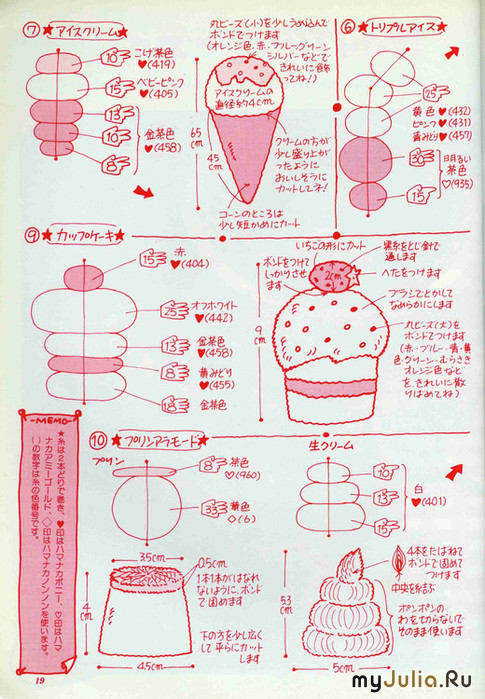 ⑦ ★アイスクリーム★
10 こげ茶色
♥(419)
15 ベビーピンク
♥(405)
13
10
8
金茶色
♥(458)
丸ビーズ(小)を少しうめ込んで
ボンドでつけます
(オレンジ色、赤、ブルー、グリーン
シルバーなどで
きれいに飾
ってね!)
アイスクリームの
直径約4cm
65cm
45cm
クリームの方が
少し盛り上が
ったように
おいしそうに
カットしてネ!
コーンのところは
少し短かめにカート
⑥ ★トリプルアイス★
25
黄色♥(432)
ピンク♥(431)
黄みどり♥(457)
30
15
明るい
茶色
♡(935)
⑨ ★カップケーキ★
15 赤
♥(404)
25 オフホワイト
♥(442)
13 金茶色
♥(458)
8 黄みどり
♥(455)
18 金茶色
いちごの形にカット
黒糸をとじ針で
通します
ボンドをつけて
しっかりさせ
ます
2cm
へたをつけます
ブラシでとかして
なめらかにします
丸ビーズ(大)を
ボンドでつけます
(赤・ブルー・青・黄
色・グリーン・むらさき
オレンジ色など
を、きれいに散
りばめてね)
9cm
⑩ ★プリンアラモード★
プリン
8 茶色
♡(960)
35 黄色
◇(6)
35cm
0.5cm
1本1本がはなれ
ないように、ボンド
で固めます
4cm
下の方を少し広く
して平らにカット
します
45cm
生クリーム
10
13
15
白
♥(401)
4本をたばねて
ボンドで固めて
つけます
中央を結ぶ
ポンポンの
わを切らないで
そのまま使います
53cm
5cm
-MEMO-
★糸は2本どりで巻き、♥印はハマナカボニー、♡印はハマ
ナカアミーゴールド、◇印はハマナカノンノンを使います。
( )の数字は糸の色番号です。
19
myJulia.Ru